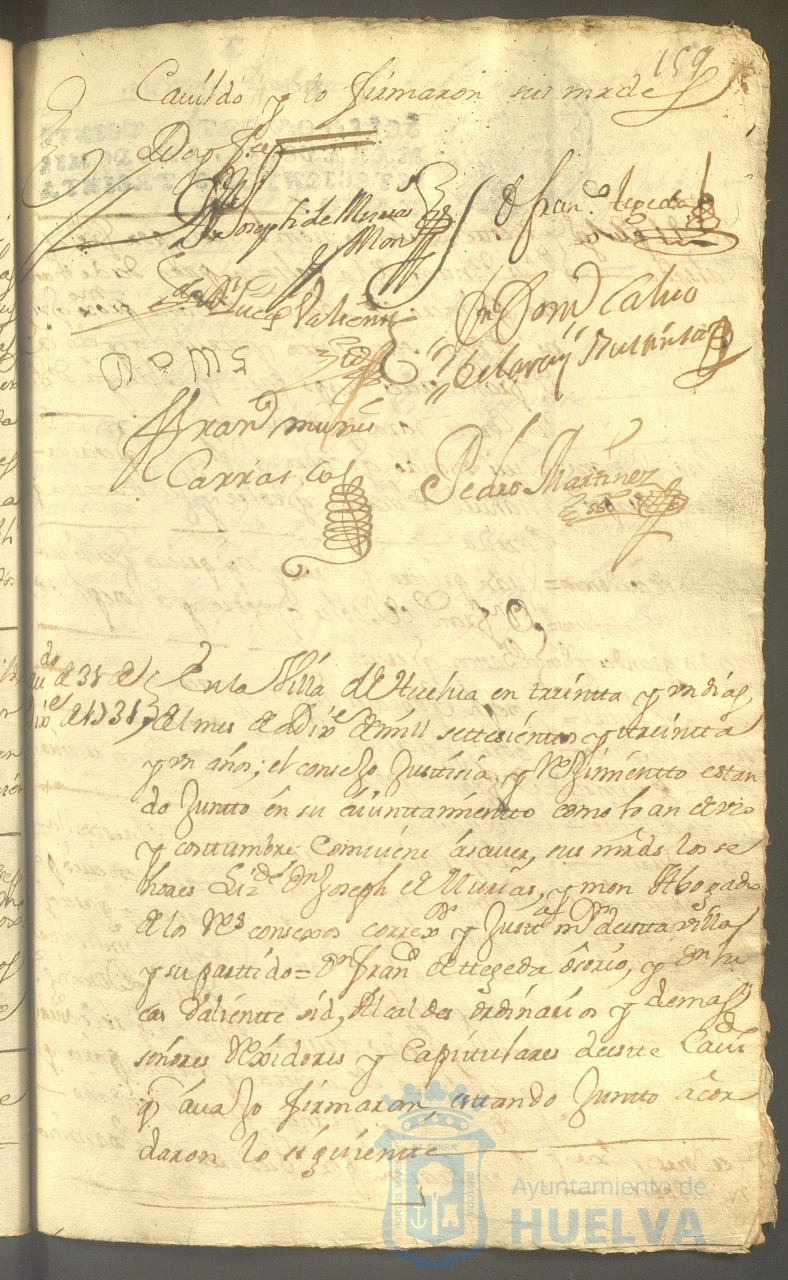 159
Cavildo y lo firmaron sus mrds
Doy fee
Dn Joseph de
y Mon
D Fran.co tegeda
Dn Lucas Valiente
Dn Domo Calvo
Franco muñis
Carrasco
Pedro Martinez
ssno
do de 31 de
dixe de 1731
En la Villa de Huelva en treintta y un dias
del mes de Dixe de mill settesientos y treintta
y un años; el consejo Justisia, y Reximientto estan
do Juntto en su aiunttamientto como lo an de uso
y costtumbre comviene a saver, sus mrds los se
ñores Lizdo Dn Joseph de y mon Abogado
de los Rs consexos correxor y Justta mor de estta villa
y su parttido = Dn Franco de ttegeda osorio, y Dn lu
cas Valientte sid, Alcaldes ordinarios y demas
señores Rexidores y Capitulares de estte Cavdo
q avajo firmaran esttando Juntto acor
daron lo siguientte
Ayuntamiento de
HUELVA